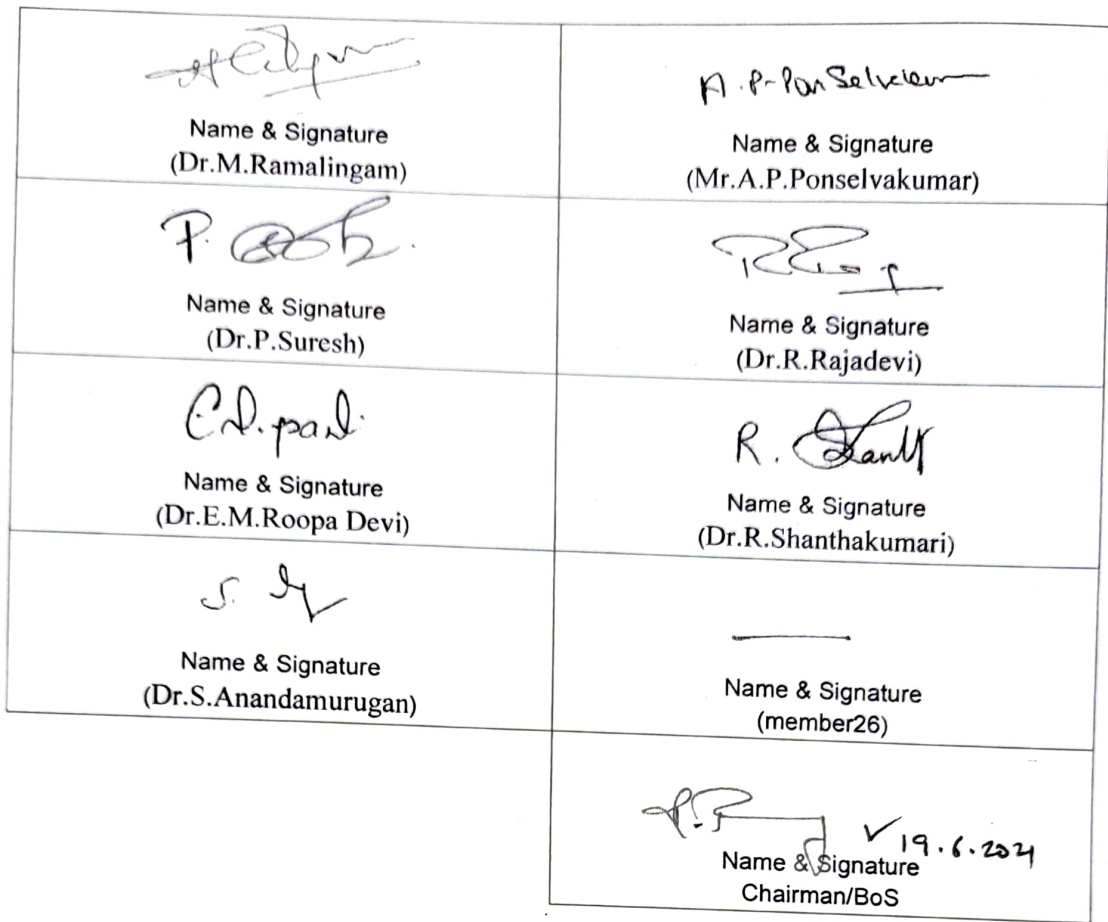 A.P-Pon Selvakum
Name & Signature
(Dr.M.Ramalingam)
Name & Signature
(Mr.A.P.Ponselvakumar)
P.
Name & Signature
(Dr.P.Suresh)
Name & Signature
(Dr.R.Rajadevi)
Name & Signature
(Dr.E.M.Roopa Devi)
R.
Name & Signature
(Dr.R.Shanthakumari)
S.
Name & Signature
(Dr.S.Anandamurugan)
Name & Signature
(member26)
19.6.2021
Name & Signature
Chairman/BoS